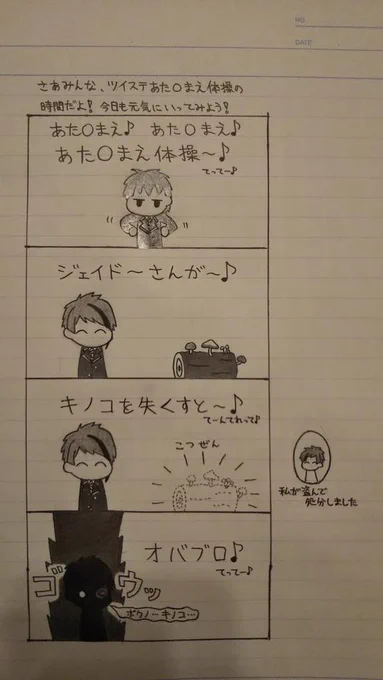 NO.
DATE
さあみんな、ツイステあた〇まえ体操の
時間だよ!今日も元気にいってみよう!
あた〇まえ♪ あた〇まえ♪
あた〇まえ体操〜♪
てってー♪
ジェイド〜さんが〜♪
キノコを失くすと〜♪
てーんてれって♪
こつぜん
私が盗んで
処分しました
オバブロ♪
てってー♪
ゴロロウッ
ボクノーキノコ…